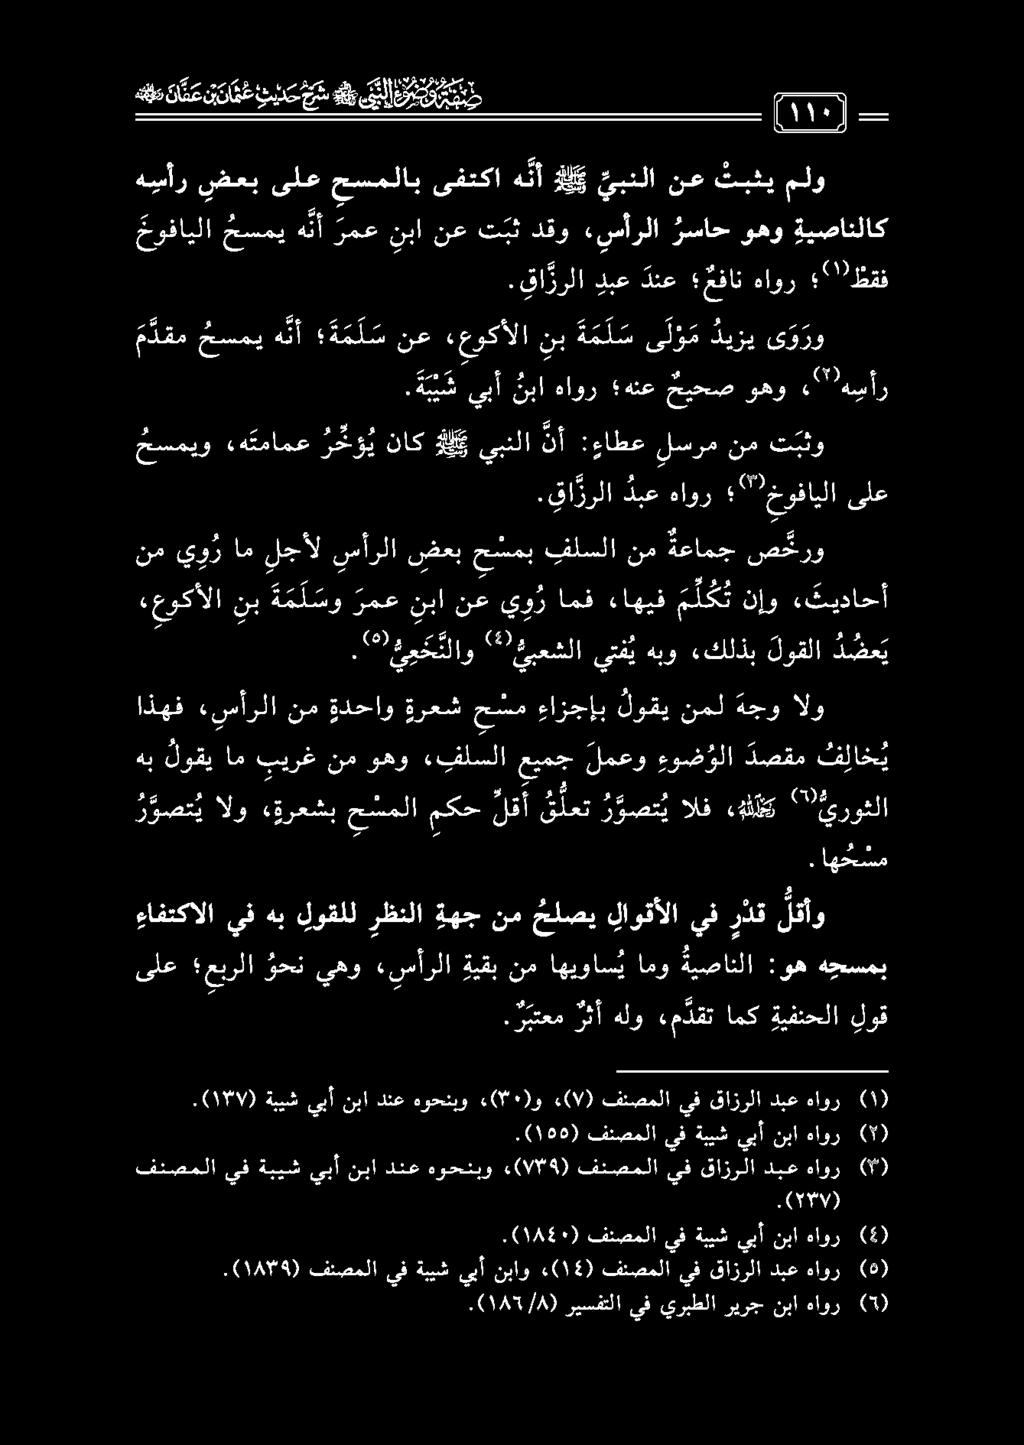 صفة وضوء النبي ﷺ شرح حديث عثمان بن عفان رضي الله عنه
١١٠
ولم يثبتْ عن النبيِّ ﷺ أنَّه اكتفى بالمسحِ على بعضِ رأسِه
كالناصيةِ وهو حاسرُ الرأسِ، وقد ثبَت عن ابنِ عمرَ أنَّه يمسحُ اليافوخَ
فقطْ(١)؛ رواه نافعٌ؛ عندَ عبدِ الرزَّاقِ.
ورَوَى يزيدُ مَوْلَى سَلَمَةَ بنِ الأكوعِ، عن سَلَمَةَ؛ أنَّه يمسحُ مقدَّمَ
رأسِه(٢)، وهو صحيحٌ عنه؛ رواه ابنُ أبي شَيْبَةَ.
وثبَت من مرسلِ عطاءٍ: أنَّ النبي ﷺ كان يُؤخِّرُ عمامتَه، ويمسحُ
على اليافوخِ(٣)؛ رواه عبدُ الرزَّاقِ.
ورخَّص جماعةٌ من السلفِ بمسْحِ بعضِ الرأسِ لأجلِ ما رُوِي من
أحاديثَ، وإن تُكُلِّمَ فيها، فما رُوِي عن ابنِ عمرَ وسَلَمَةَ بنِ الأكوعِ،
يَعضُدُ القولَ بذلك، وبه يُفتي الشعبيُّ(٤) والنَّخَعِيُّ(٥).
ولا وجهَ لمن يقولُ بإجزاءِ مسْحِ شعرةٍ واحدةٍ من الرأسِ، فهذا
يُخالِفُ مقصدَ الوُضوءِ وعملَ جميعِ السلفِ، وهو من غريبِ ما يقولُ به
الثوريُّ(٦) رحمه الله، فلا يُتصوَّرُ تعلُّقُ أقلِّ حكمِ المسْحِ بشعرةٍ، ولا يُتصوَّرُ
مسْحُها.
وأقلُّ قدْرٍ في الأقوالِ يصلحُ من جهةِ النظرِ للقولِ به في الاكتفاءِ
بمسحِه هو: الناصيةُ وما يُساويها من بقيةِ الرأسِ، وهي نحوُ الربعِ؛ على
قولِ الحنفيةِ كما تقدَّم، وله أثرٌ معتبَرٌ.
(١) رواه عبد الرزاق في المصنف (٧)، و(٣٠)، وبنحوه عند ابن أبي شيبة (١٣٧).
(٢) رواه ابن أبي شيبة في المصنف (١٥٥).
(٣) رواه عبد الرزاق في المصنف (٧٣٩)، وبنحوه عند ابن أبي شيبة في المصنف
(٢٣٧).
(٤) رواه ابن أبي شيبة في المصنف (١٨٤٠).
(٥) رواه عبد الرزاق في المصنف (١٤)، وابن أبي شيبة في المصنف (١٨٣٩).
(٦) رواه ابن جرير الطبري في التفسير (١٨٦/٨).